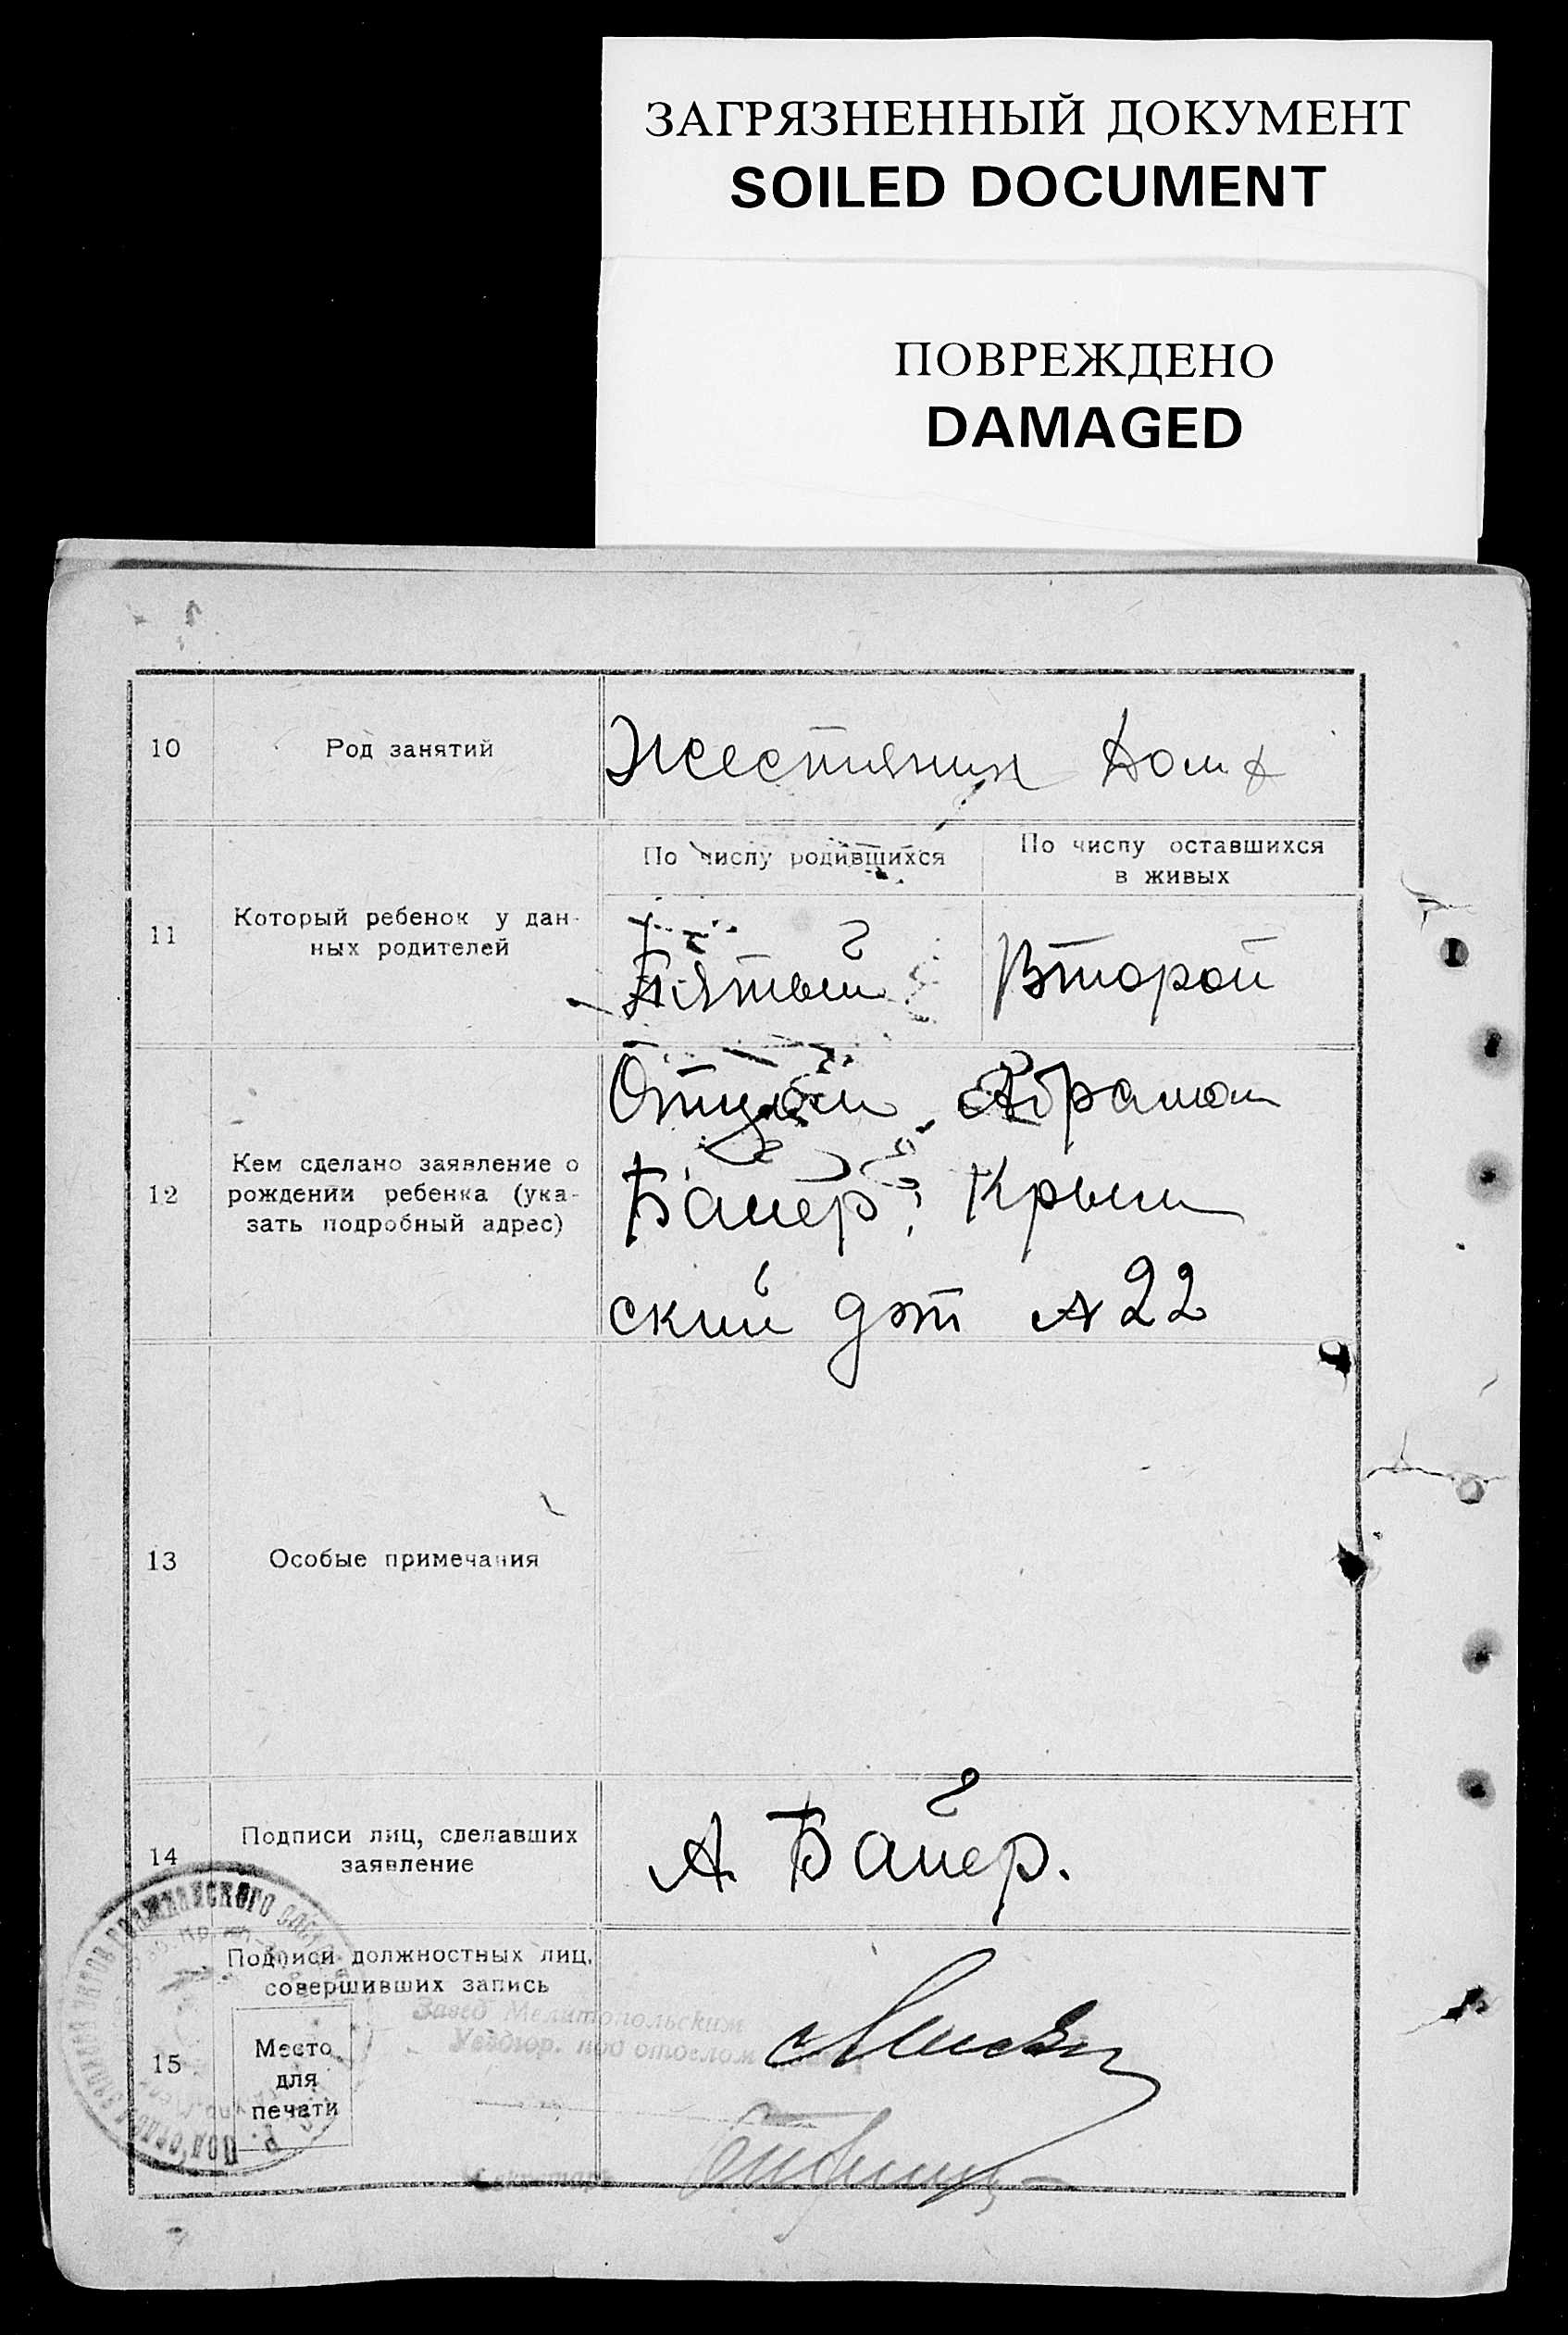 ЗАГРЯЗНЕННЫЙ ДОКУМЕНТ
SOILED DOCUMENT
ПОВРЕЖДЕНО
DAMAGED
10
Род занятий
Жестяник Дом х
11
Который ребенок у дан-
ных родителей
По числу родившихся
По числу оставшихся
в живых
Пятый
Второй
12
Кем сделано заявление о
рождении ребенка (ука-
зать подробный адрес)
Отцом Абрамом
Байер, Крым
ский
№ 22
13
Особые примечания
14
Подписи лиц, сделавших
заявление
А. Байер.
15
Подписи должностных лиц,
совершивших запись
Место
для
печати
Завед Мелитопольским
Уездгор. под отделом
Секретарь